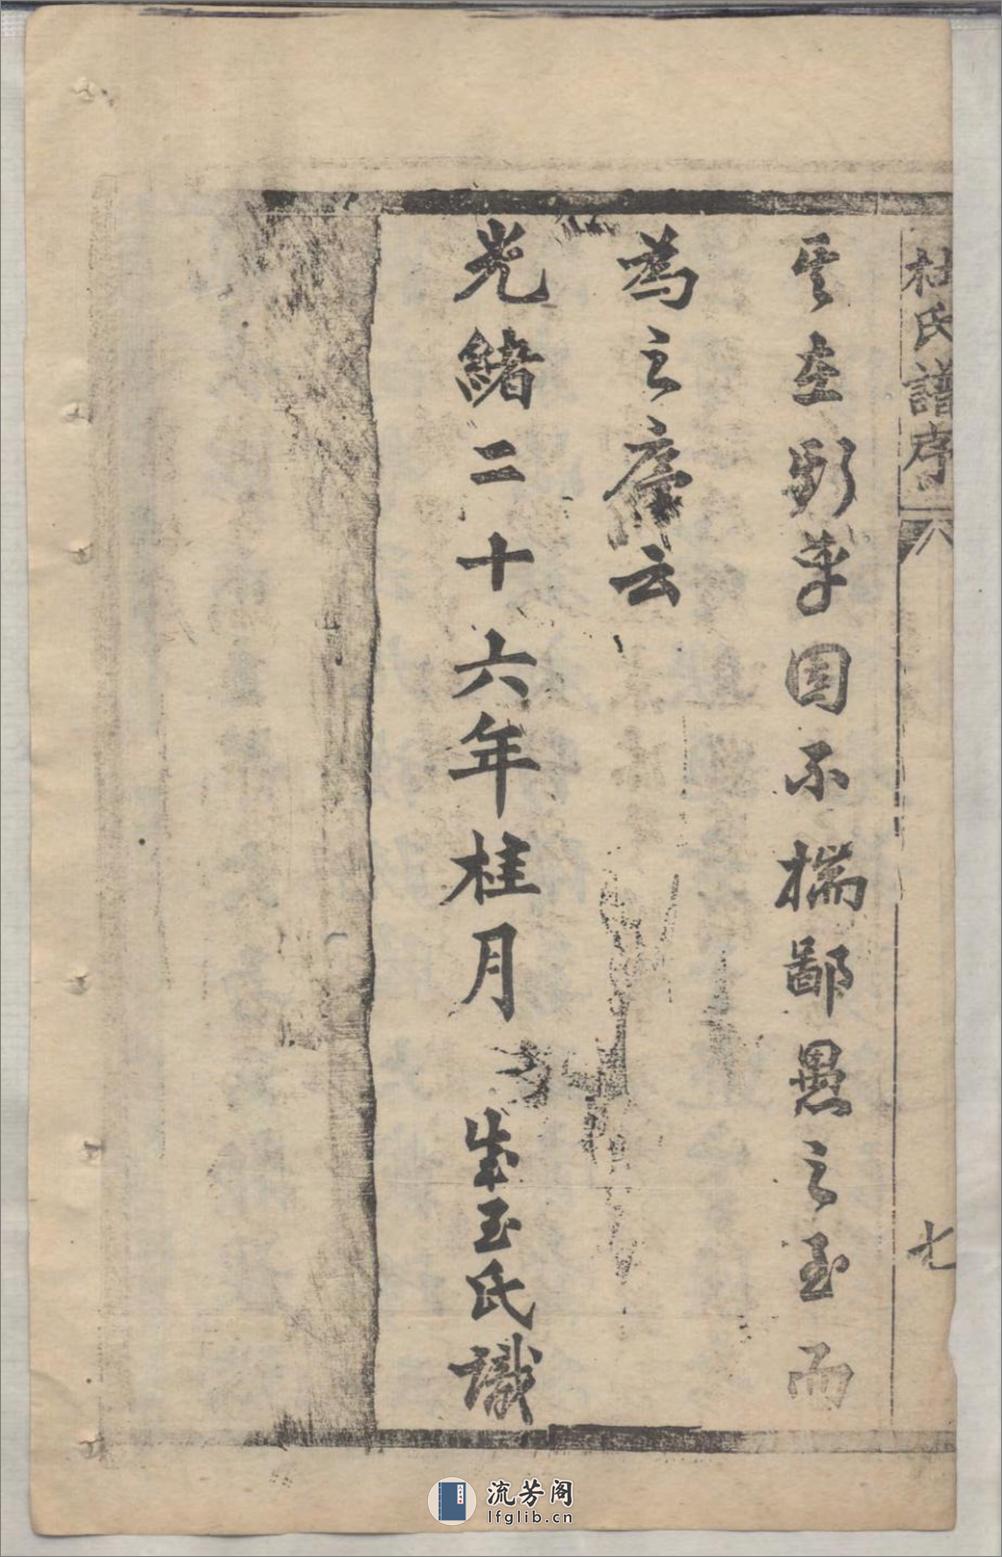 杜氏譜序
七
其在斯乎因不揣鄙愚之至而
為之序云
光緒二十六年桂月 生玉氏識
流芳阁
lfglib.cn